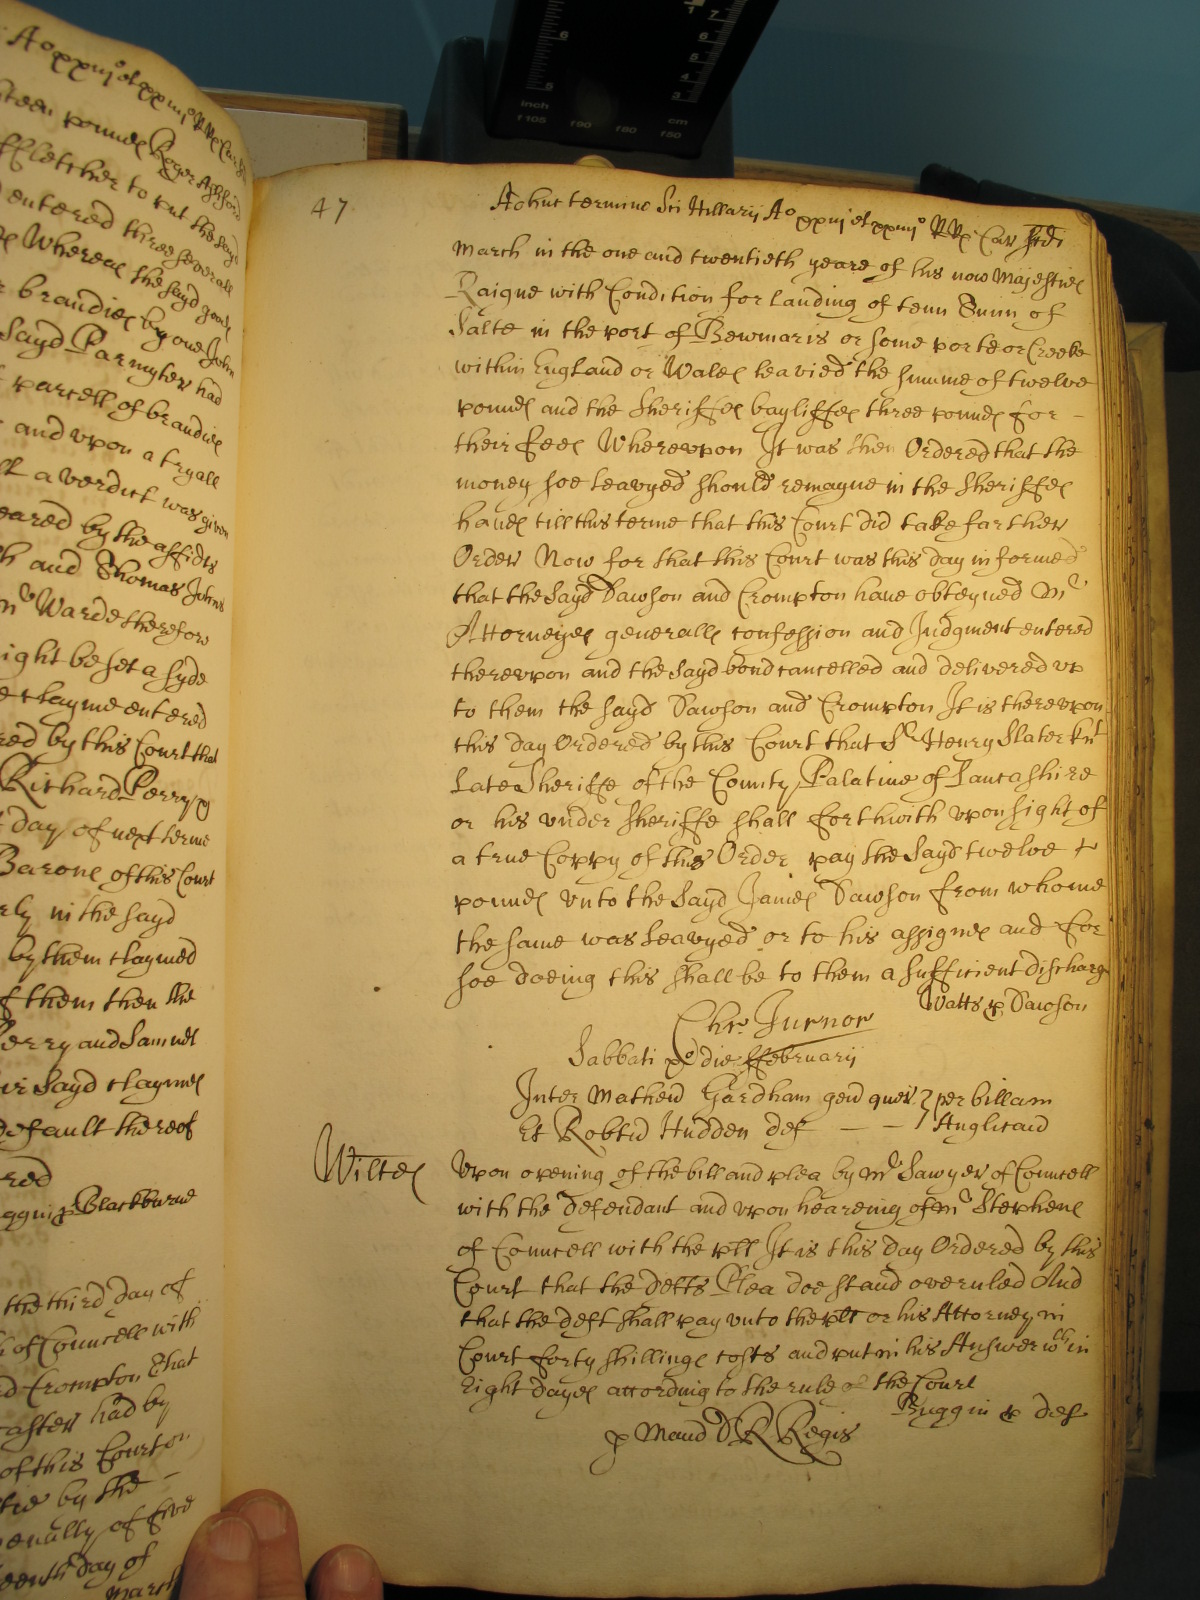 Ao xxiijo et xxiiijo RRs Car
teen pounds Roger Ashford
ffletcher to put the sayd
entered three severall
Whereas the sayd goods
brandies by one John
Sayd Parmyter had
parcell of brandies
and vpon a tryall
a verdict was given
eared by the affidts
and Thomas Johns
mr Warde therefore
ight be set a syde
claymes entered
red by this Court that
Richard Perry
day of next terme
Barons of this Court
ly in the sayd
by them claymed
of them then the
Perry and Samuel
ir Sayd claymes
default thereof
red
Buggin p Blackburne
the third day of
of Councell with
Crompton that
caster had by
of this Court
by the
penalty of five
teenth day of
March
47
Adhuc termino Sci Hillarij Ao xxiijo et xxiiijo RRs Car Scdi
March in the one and twentieth yeare of his now Majesties
Raigne with Condition for landing of tenn Tunn of
Salte in the port of Bewmaris or some porte or Creeke
within England or Wales leavied the summe of twelve
pounds and the Sheriffes bayliffes three pounds for -
their fees Wherevpon It was then Ordered that the
money soe leavyed should remayne in the Sheriffes
hands till this terme that this Court did take farther
Order Now for that this Court was this day informed
that the Sayd Dawson and Crompton have obteyned Mr
Attorneyes generalls confession and Judgment entered
therevpon and the Sayd bond cancelled and delivered vp
to them the sayd Dawson and Crompton It is therevpon
this day Ordered by this Court that Sr Henry Slater knt
Late Sheriffe of the County Palatine of Lancashire
or his vnder Sheriffe shall forthwith vpon sight of
a true Coppy of this Order pay the Sayd twelve
pounds vnto the Sayd James Dawson from whome
the same was leavyed or to his assignes and for
soe doeing this shall be to them a sufficient discharg
Watts p Dawson
Chr. Turnor
Sabbati po die ffebruarij
Inter Matheu Gardham gen quer } per billam
Et Robtu Hudden def - - } Anglicand
Wiltes
Vpon opening of the bill and plea by mr Sawyer of Councell
with the defendant and vpon heareing of mr Stephens
of Councell with the plt It is this day Ordered by this
Court that the defts Plea doe stand overruled And
that the deft shall pay vnto the plt or his Attorney in
Court forty shillings costs and put in his Answer wth in
Eight dayes according to the rule of the Court
Buggin p def
p Maud R Regis